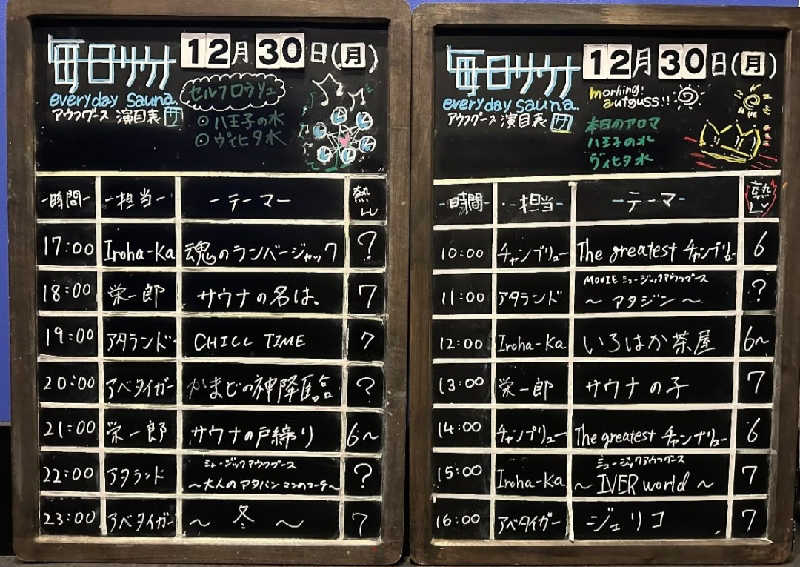 毎日サウナ 12月30日(月)
everyday sauna.
アウフグース 演目表 サ
セルフロウリュ
◎八王子の水
◎ヴィヒタ水
-時間- -担当- -テーマ- 熱Lv
17:00 Iroha-Ka 魂のランバージャック ?
18:00 栄一郎 サウナの名は。 7
19:00 アタランド CHILL TIME 7
20:00 アベタイガー かまどの神降臨 ?
21:00 栄一郎 サウナの戸締り 6~
22:00 アタランド ミュージックアウフグース ?
23:00 アベタイガー ~ 冬 ~ 7
毎日サウナ 12月30日(月)
everyday sauna.
アウフグース 演目表 サ
morning!
aufguss!!
本日のアロマ
八王子の水
ヴィヒタ水
-時間- -担当- -テーマ- 熱Lv
10:00 チャンプリュー The greatest チャンプリュー 6
11:00 アタランド MOVIE ミュージックアウフグース ?
~ アタジン ~
12:00 Iroha-Ka いろはか茶屋 6~
13:00 栄一郎 サウナの子 7
14:00 チャンプリュー The greatest チャンプリュー 6
15:00 Iroha-Ka ミュージックアウフグース 7
~ IVER world ~
16:00 アベタイガー ジェリコ 7